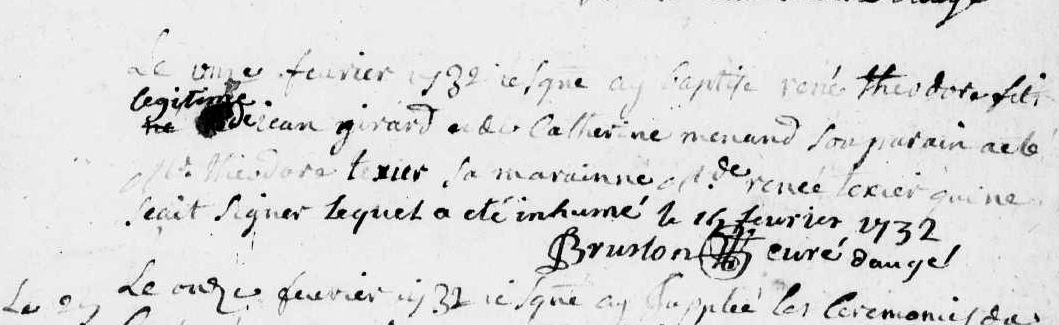 Le onze feuvier 1732 ie sgne ay baptise rené theodore fils
legitime
ne de jean girard et de Catherine menand son parain a eté
Mr. theodore texier sa marainne Mde renée texier qui ne
scait signer lequel a eté inhumé le 16 feuvrier 1732
Bruslon curé daugé
Le onze feuvier 1732 ie sgne ay supplée les Ceremonies de
Le 29